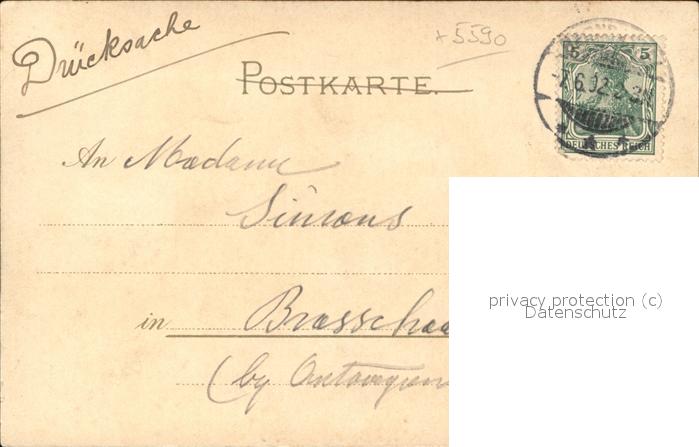 Drucksache
+5590
POSTKARTE.
5 5
6.02
DEUTSCHES REICH
An Madame
Simons
in Brasschaa
(by
privacy protection (c)
Datenschutz